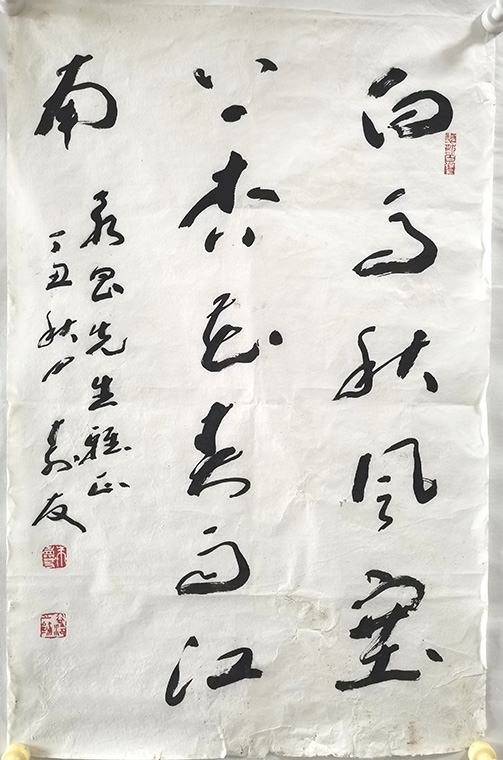 白马秋风塞
上杏花春雨江
南
先生雅正
丁丑秋 友